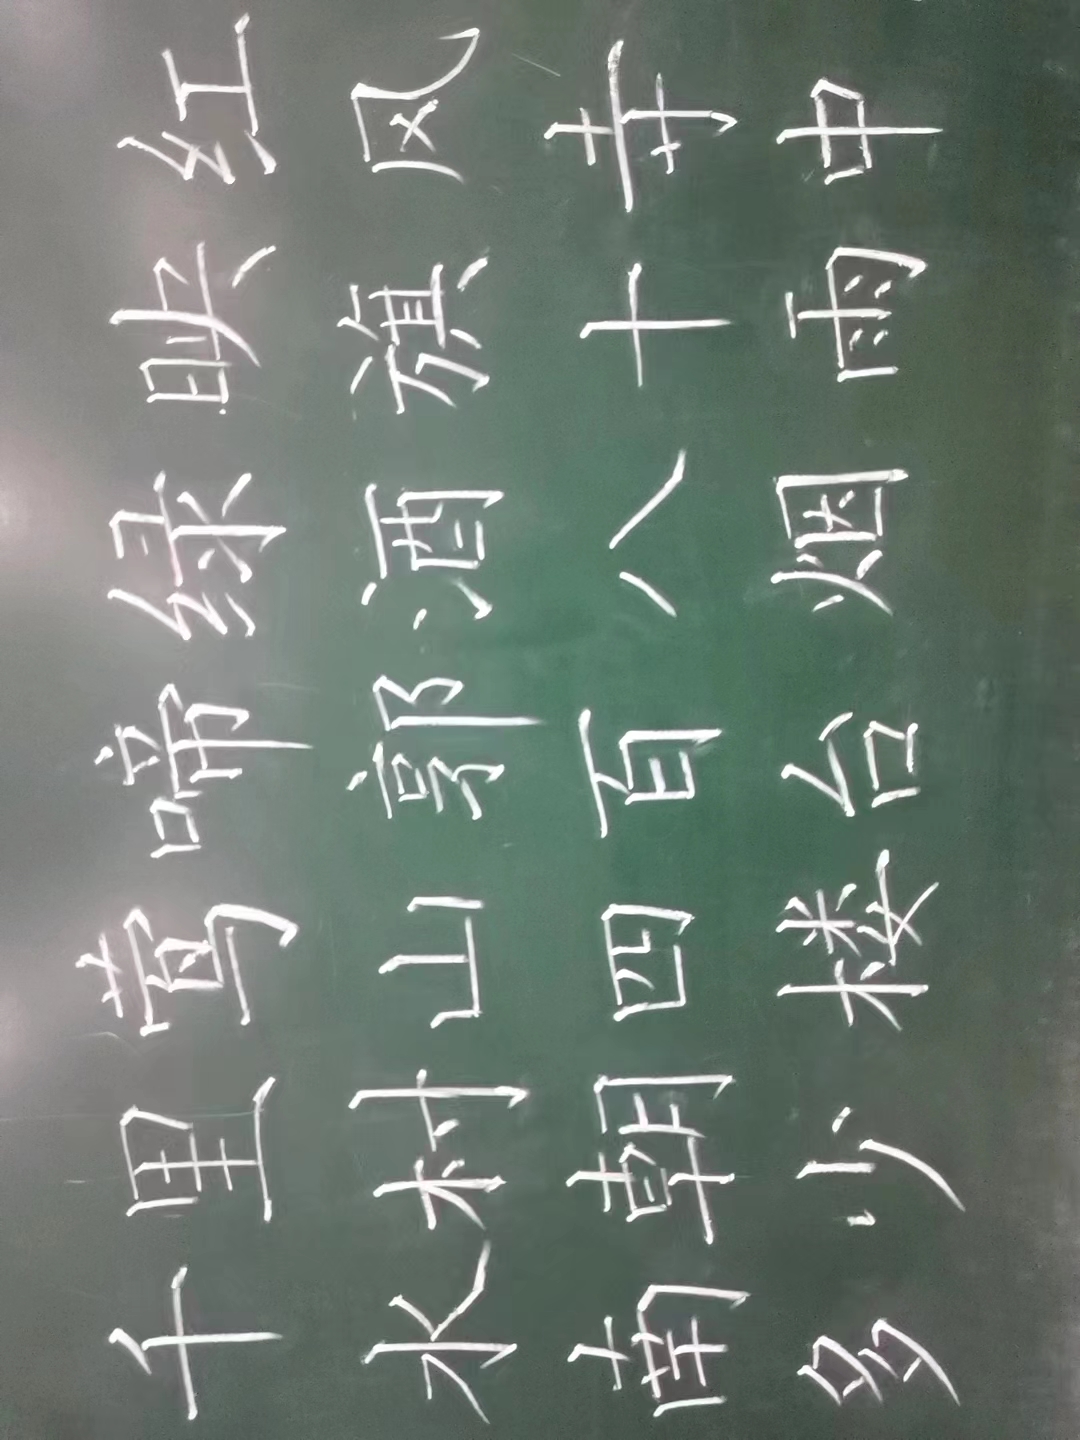 千里莺啼绿映红
水村山郭酒旗风
南朝四百八十寺
多少楼台烟雨中